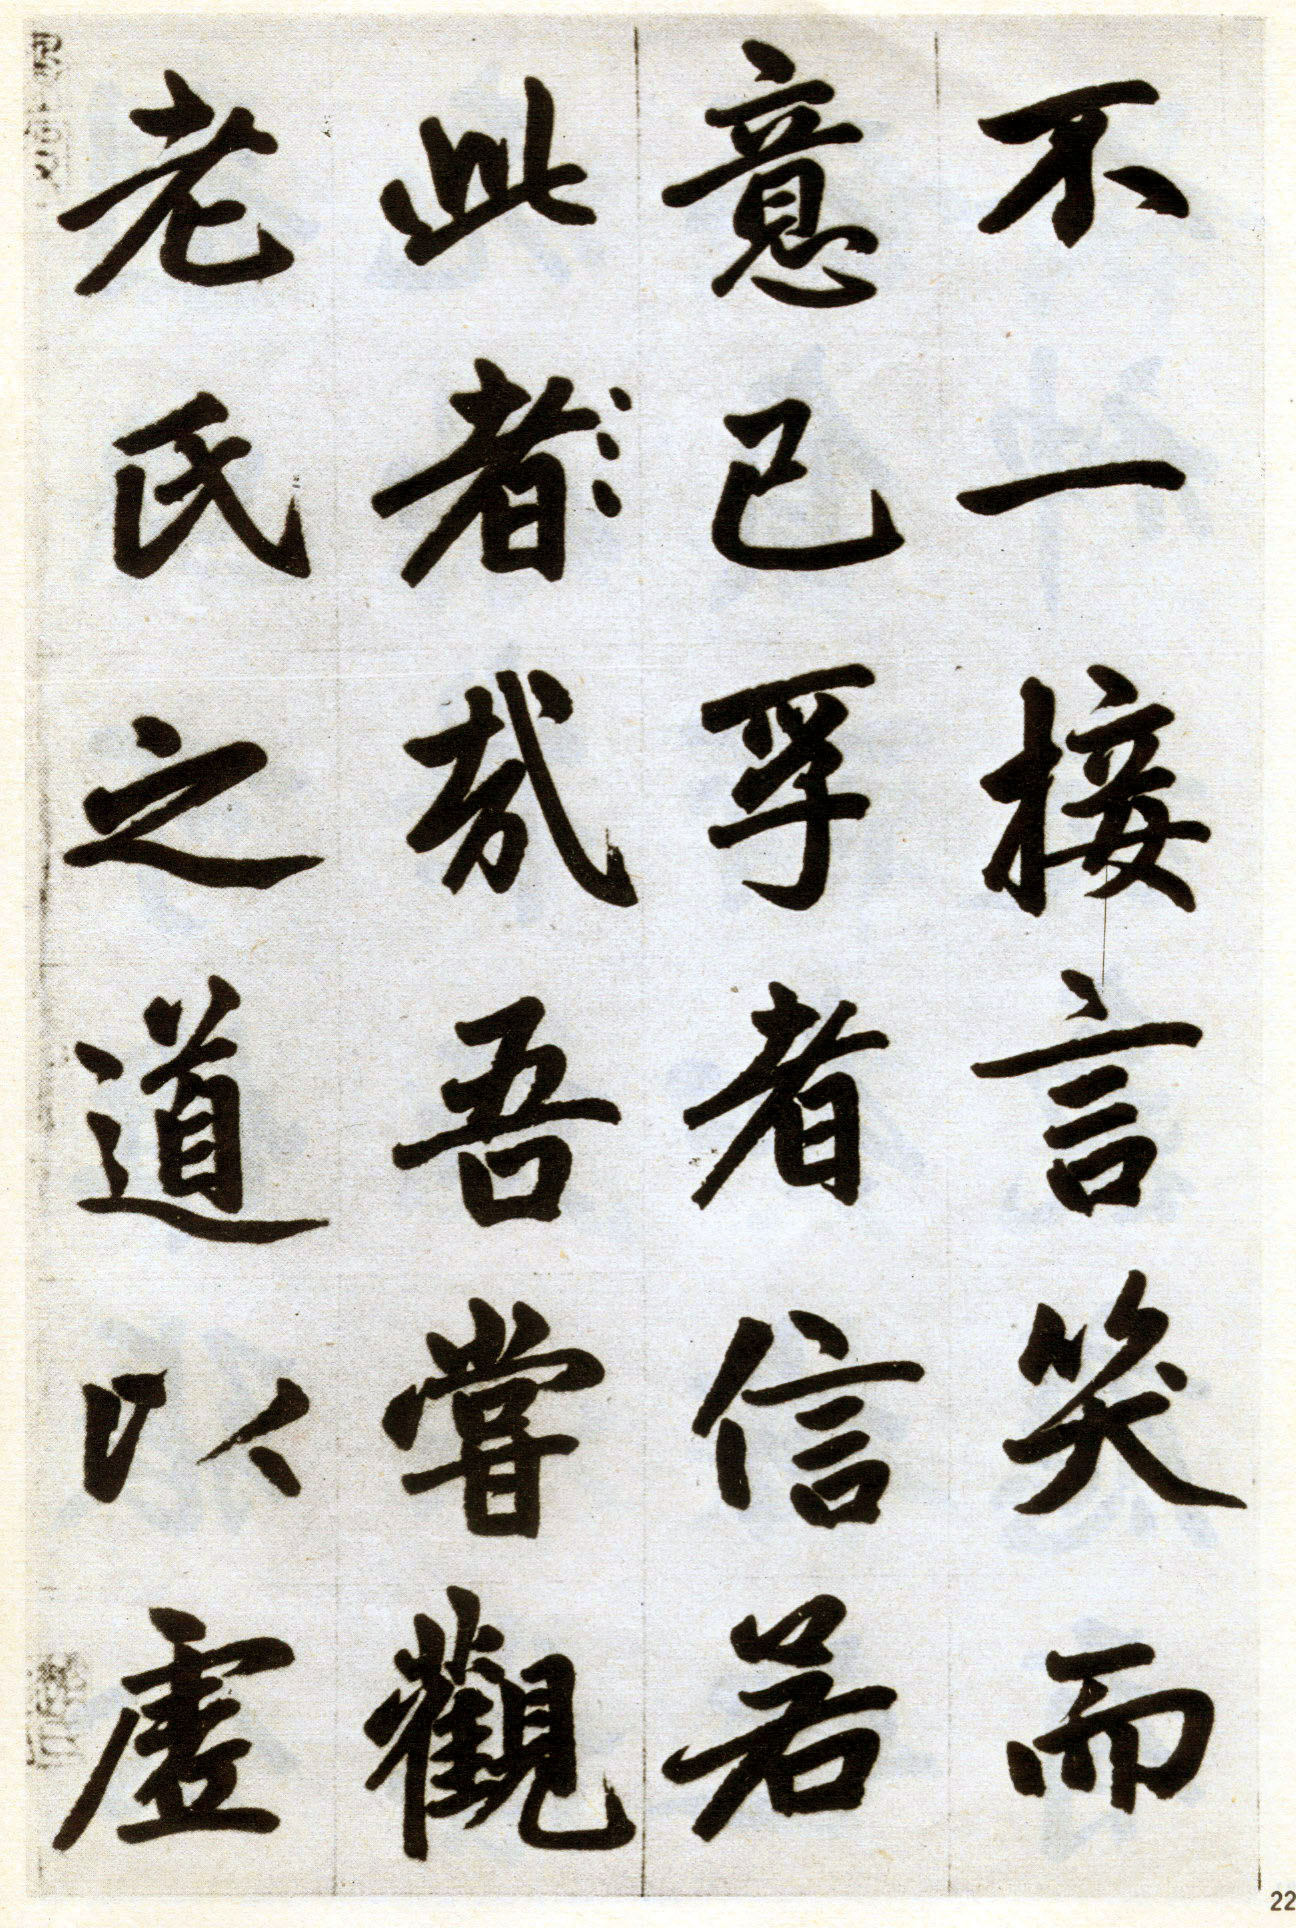 不一接言笑而
意已孚者信若
此者哉吾嘗觀
老氏之道以虛
22